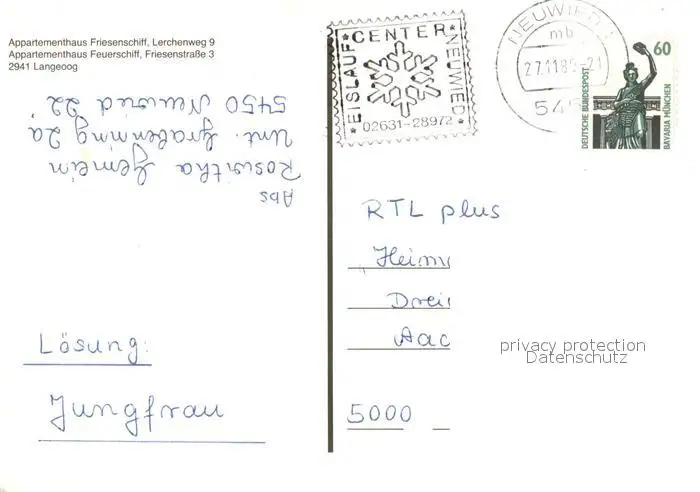 Appartementhaus Friesenschiff, Lerchenweg 9
Appartementhaus Feuerschiff, Friesenstraße 3
2941 Langeoog
Abs
Roswitha
Unt. 2a
5450 Neuwied 22
Lösung:
Jungfrau
EISLAUF CENTER NEUWIED
02631-28972
NEUWIED 1
mb
27.11.89-21
545
60
DEUTSCHE BUNDESPOST
BAVARIA MÜNCHEN
RTL plus
Drei
Aac
5000
privacy protection
Datenschutz